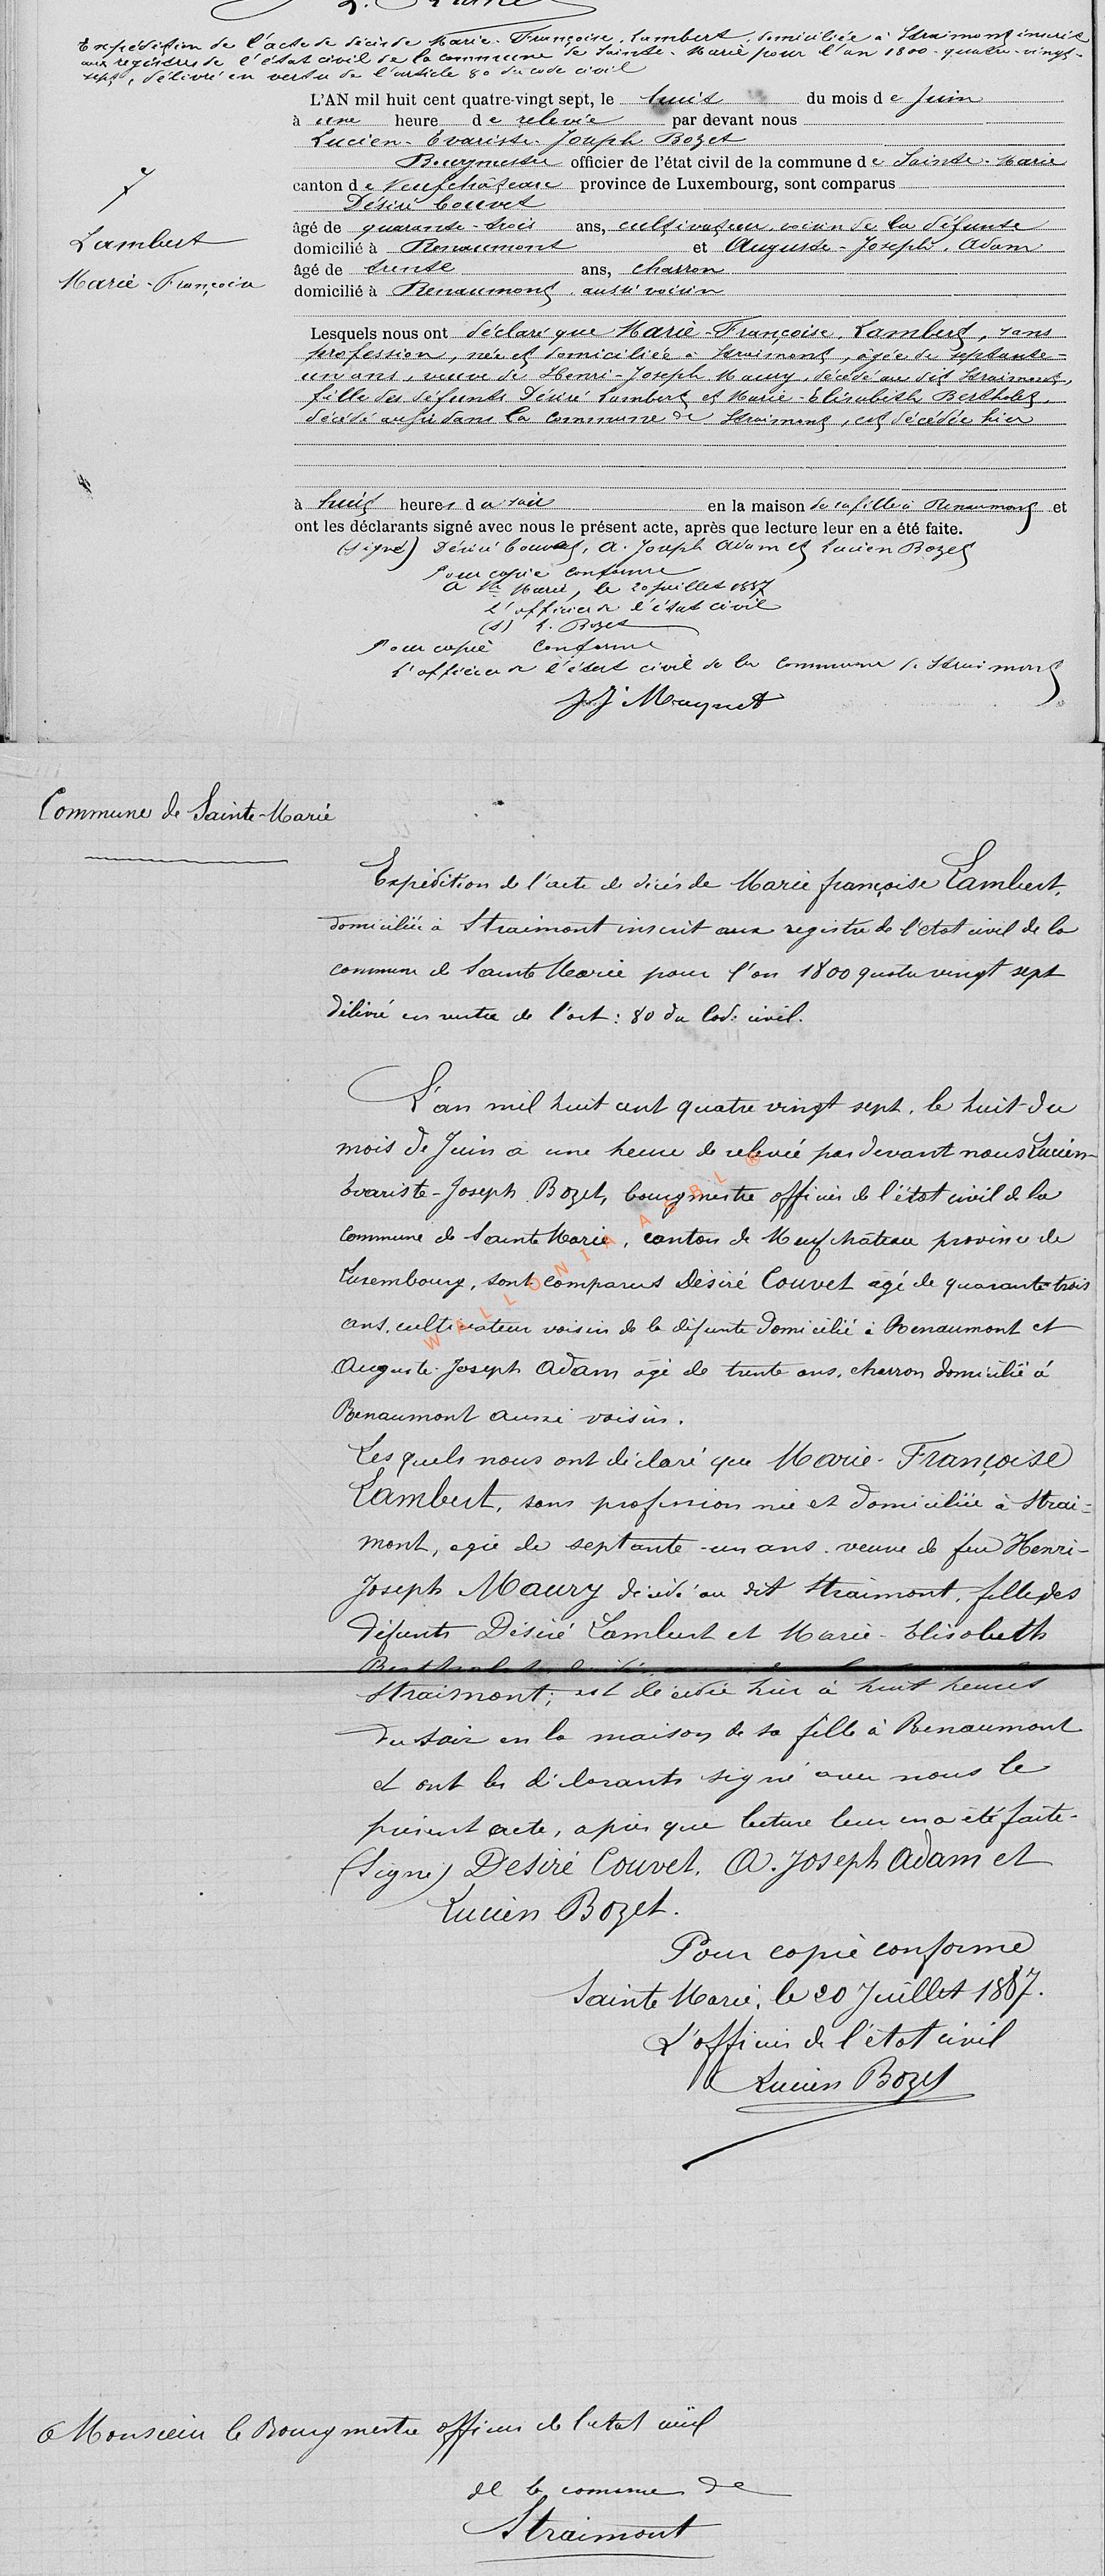 Expédition de l'acte de décès de Marie-Françoise Lambert, domiciliée à Straimont inscrit
aux registres de l'état civil de la commune de Sainte-Marie pour l'an 1800-quatre-vingt-
sept, délivré en vertu de l'article 80 du code civil
L'AN mil huit cent quatre-vingt sept, le huit du mois de Juin
à une heure de relevée par devant nous
Lucien-Evariste-Joseph Bozet
Bourgmestre officier de l'état civil de la commune de Sainte-Marie
canton de Neufchâteau province de Luxembourg, sont comparus
Désiré Couvet
7
âgé de quarante-trois ans, cultivateur voisin de la défunte
Lambert
domicilié à Renaumont et Auguste-Joseph Adam
âgé de trente ans, charron
Marie-Françoise
domicilié à Renaumont aussi voisin
Lesquels nous ont déclaré que Marie-Françoise Lambert, sans
profession, née et domiciliée à Straimont, âgée de septante-
un ans, veuve de Henri-Joseph Maury, décédé au dit Straimont,
fille des défunts Désiré Lambert et Marie-Elisabeth Bertholet,
décédé aussi dans la commune de Straimont, est décédée hier
à huit heures du soir en la maison de sa fille à Renaumont et
ont les déclarants signé avec nous le présent acte, après que lecture leur en a été faite.
(signé) Désiré Couvet, A. Joseph Adam et Lucien Bozet
Pour copie conforme
A Ste Marie, le 20 juillet 1887
l'officier de l'état civil
(s) L. Bozet
Pour copie conforme
l'officier de l'état civil de la commune de Straimont
J. J. Maquet
Commune de Sainte-Marie
Expédition de l'acte de décès de Marie françoise Lambert,
domiciliée à Straimont inscrit aux registre de l'état civil de la
commune de Sainte Marie pour l'an 1800 quatre vingt sept
délivré en vertu de l'art : 80 du Cod. civil.
L'an mil huit cent quatre vingt sept, le huit du
mois de Juin à une heure de relevée par devant nous Lucien-
Evariste-Joseph Bozet, bourgmestre officier de l'état civil de la
commune de Sainte Marie, canton de Neufchâteau province de
Luxembourg, sont comparus Désiré Couvet âgé de quarante-trois
ans, cultivateur voisin de la défunte domicilié à Renaumont et
Auguste Joseph Adam âgé de trente ans, charron domicilié à
Renaumont aussi voisin.
Lesquels nous ont déclaré que Marie-Françoise
Lambert, sans profession née et domiciliée à Strai-
mont, agée de septante-un ans. veuve de feu Henri-
Joseph Maury décédé au dit Straimont, fille des
défunts Désiré Lambert et Marie-Elisabeth
Straimont; est décédée hier à huit heures
du soir en la maison de sa fille à Renaumont
et ont les déclarants signé avec nous le
présent acte, après que lecture leur en a été faite-
(Signé) Désiré Couvet, A. Joseph Adam et
Lucien Bozet.
Pour copie conforme
Sainte Marie, le 20 Juillet 1887.
L'officier de l'état civil
Lucien Bozet
WALLONIA ASBL ®
A Monsieur le Bourgmestre officier de l'état civil
de la commune de
Straimont